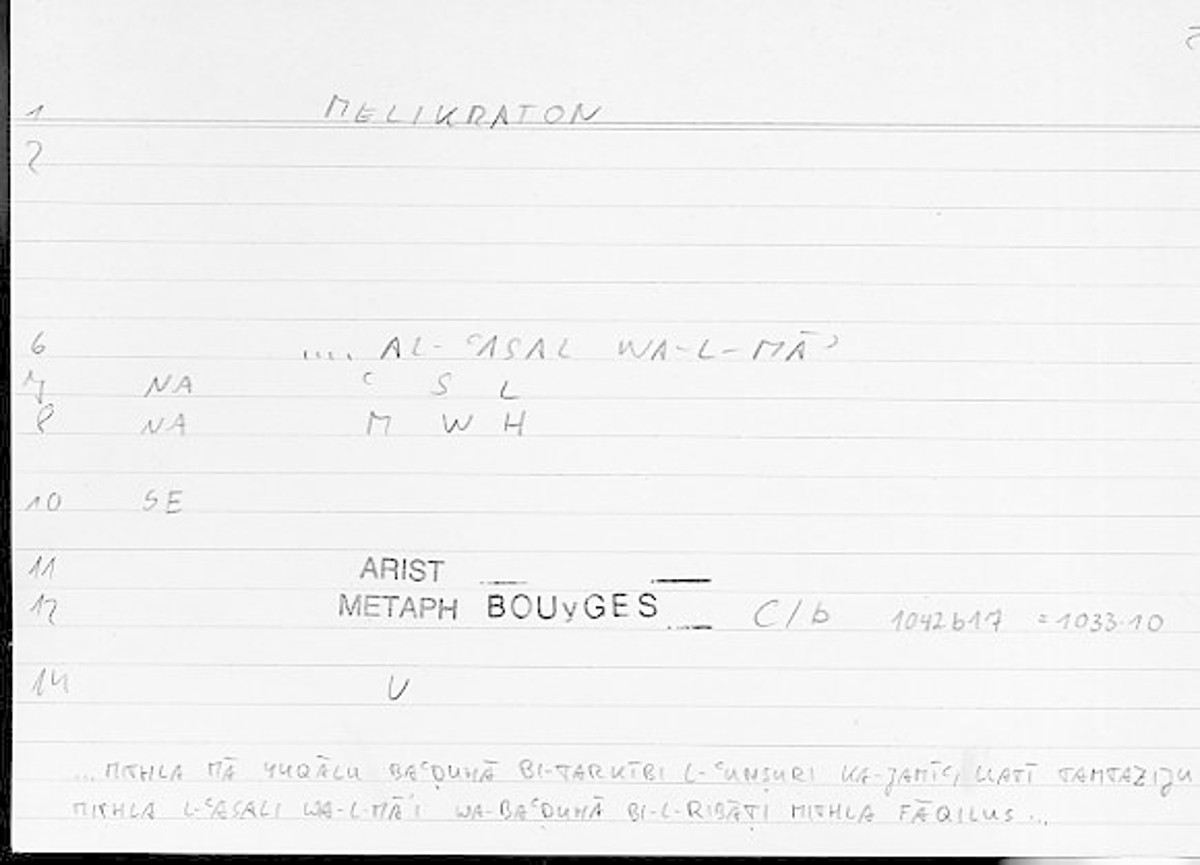 1 MELIKRATON
2
6 .... AL-ʿASAL WA-L-MĀʾ
7 NA ʿ S L
8 NA M W H
10 SE
11 ARIST
12 METAPH BOUyGES C/b 1042b17 = 1033.10
14 U
...MITHLA MĀ YUQĀLU BAʿḌUHĀ BI-TARKĪBI L-ʿUNṢURI KA-JAMĪʿI LLATĪ TAMTAZIJU
MITHLA L-ʿASALI WA-L-MĀʾI WA-BAʿḌUHĀ BI-L-RIBĀṬI MITHLA FĀQILUS ...